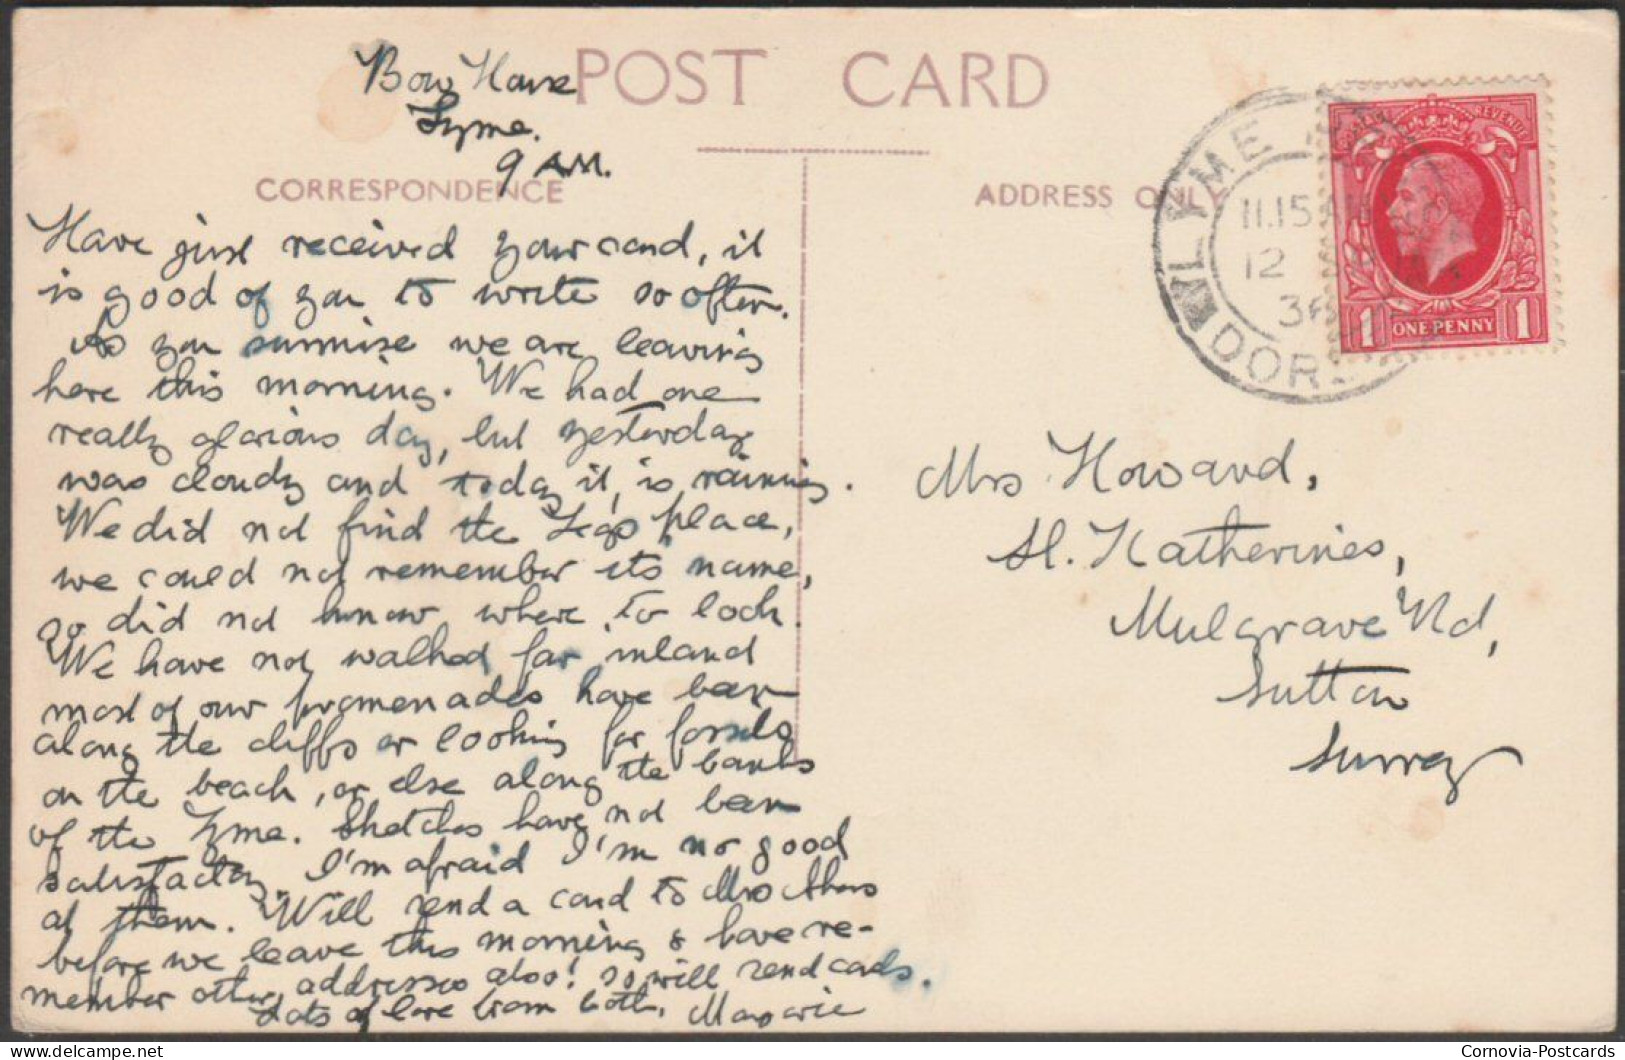 POST CARD
CORRESPONDENCE
ADDRESS ONLY
Bow House
Lyme.
9 AM.
Have just received your card, it
is good of you to write so often.
As you surmise we are leaving
here this morning. We had one
really glorious day, but yesterday
was cloudy and today it is raining.
We did not find the place,
we could not remember its name,
so did not know where to look.
We have not walked far inland
most of our promenades have been
along the cliffs or looking for fossils
on the beach, or else along the banks
of the Lyme. Sketches have not been
satisfactory I'm afraid I'm no good
at them. Will send a card to Mrs
before we leave this morning & have re-
member other addresses also! so will send cards.
Lots of love from both, Marjorie
LYME DORSET
11.15 AM
12
36
REVENUE
1 ONE PENNY 1
Mrs Howard,
St. Katherines,
Mulgrave Rd,
Sutton
Surrey
Cornovia-Postcards
delcampe.net